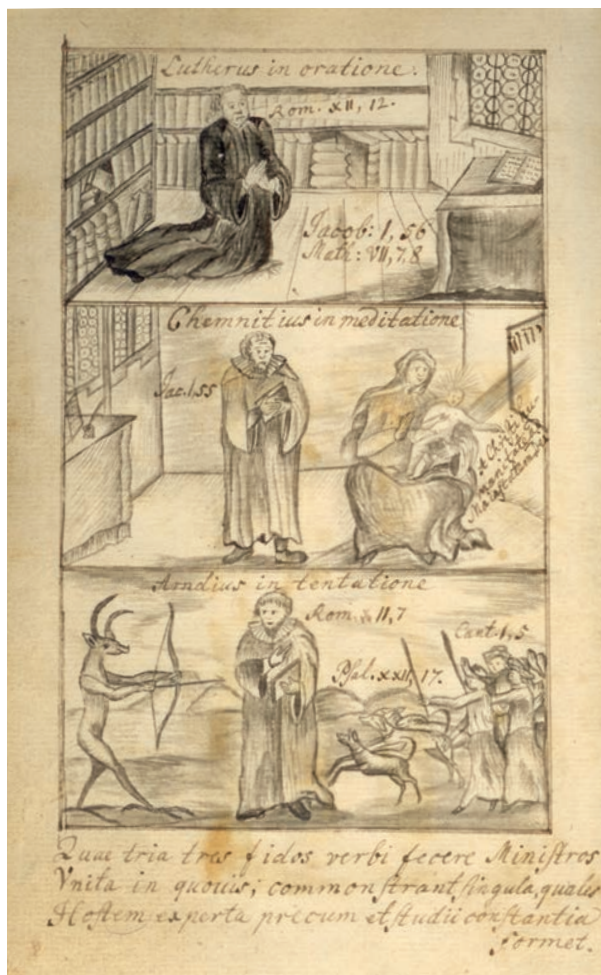 Lutherus in oratione.
Rom. XII, 12.
Jacob: 1, 56
Math: VII, 7, 8
Chemnitius in meditatione
Jac. 1, 55
A Christi hu-
manitate ad
Arndius in tentatione
Rom. XII, 7
Cant. 1, 5
Psal. XXII, 17.
Quae tria tres fidos verbi fecere Ministros
Vnita in quovis; commonstrant singula, quales
Hostem experta precum et studii constantia
formet.